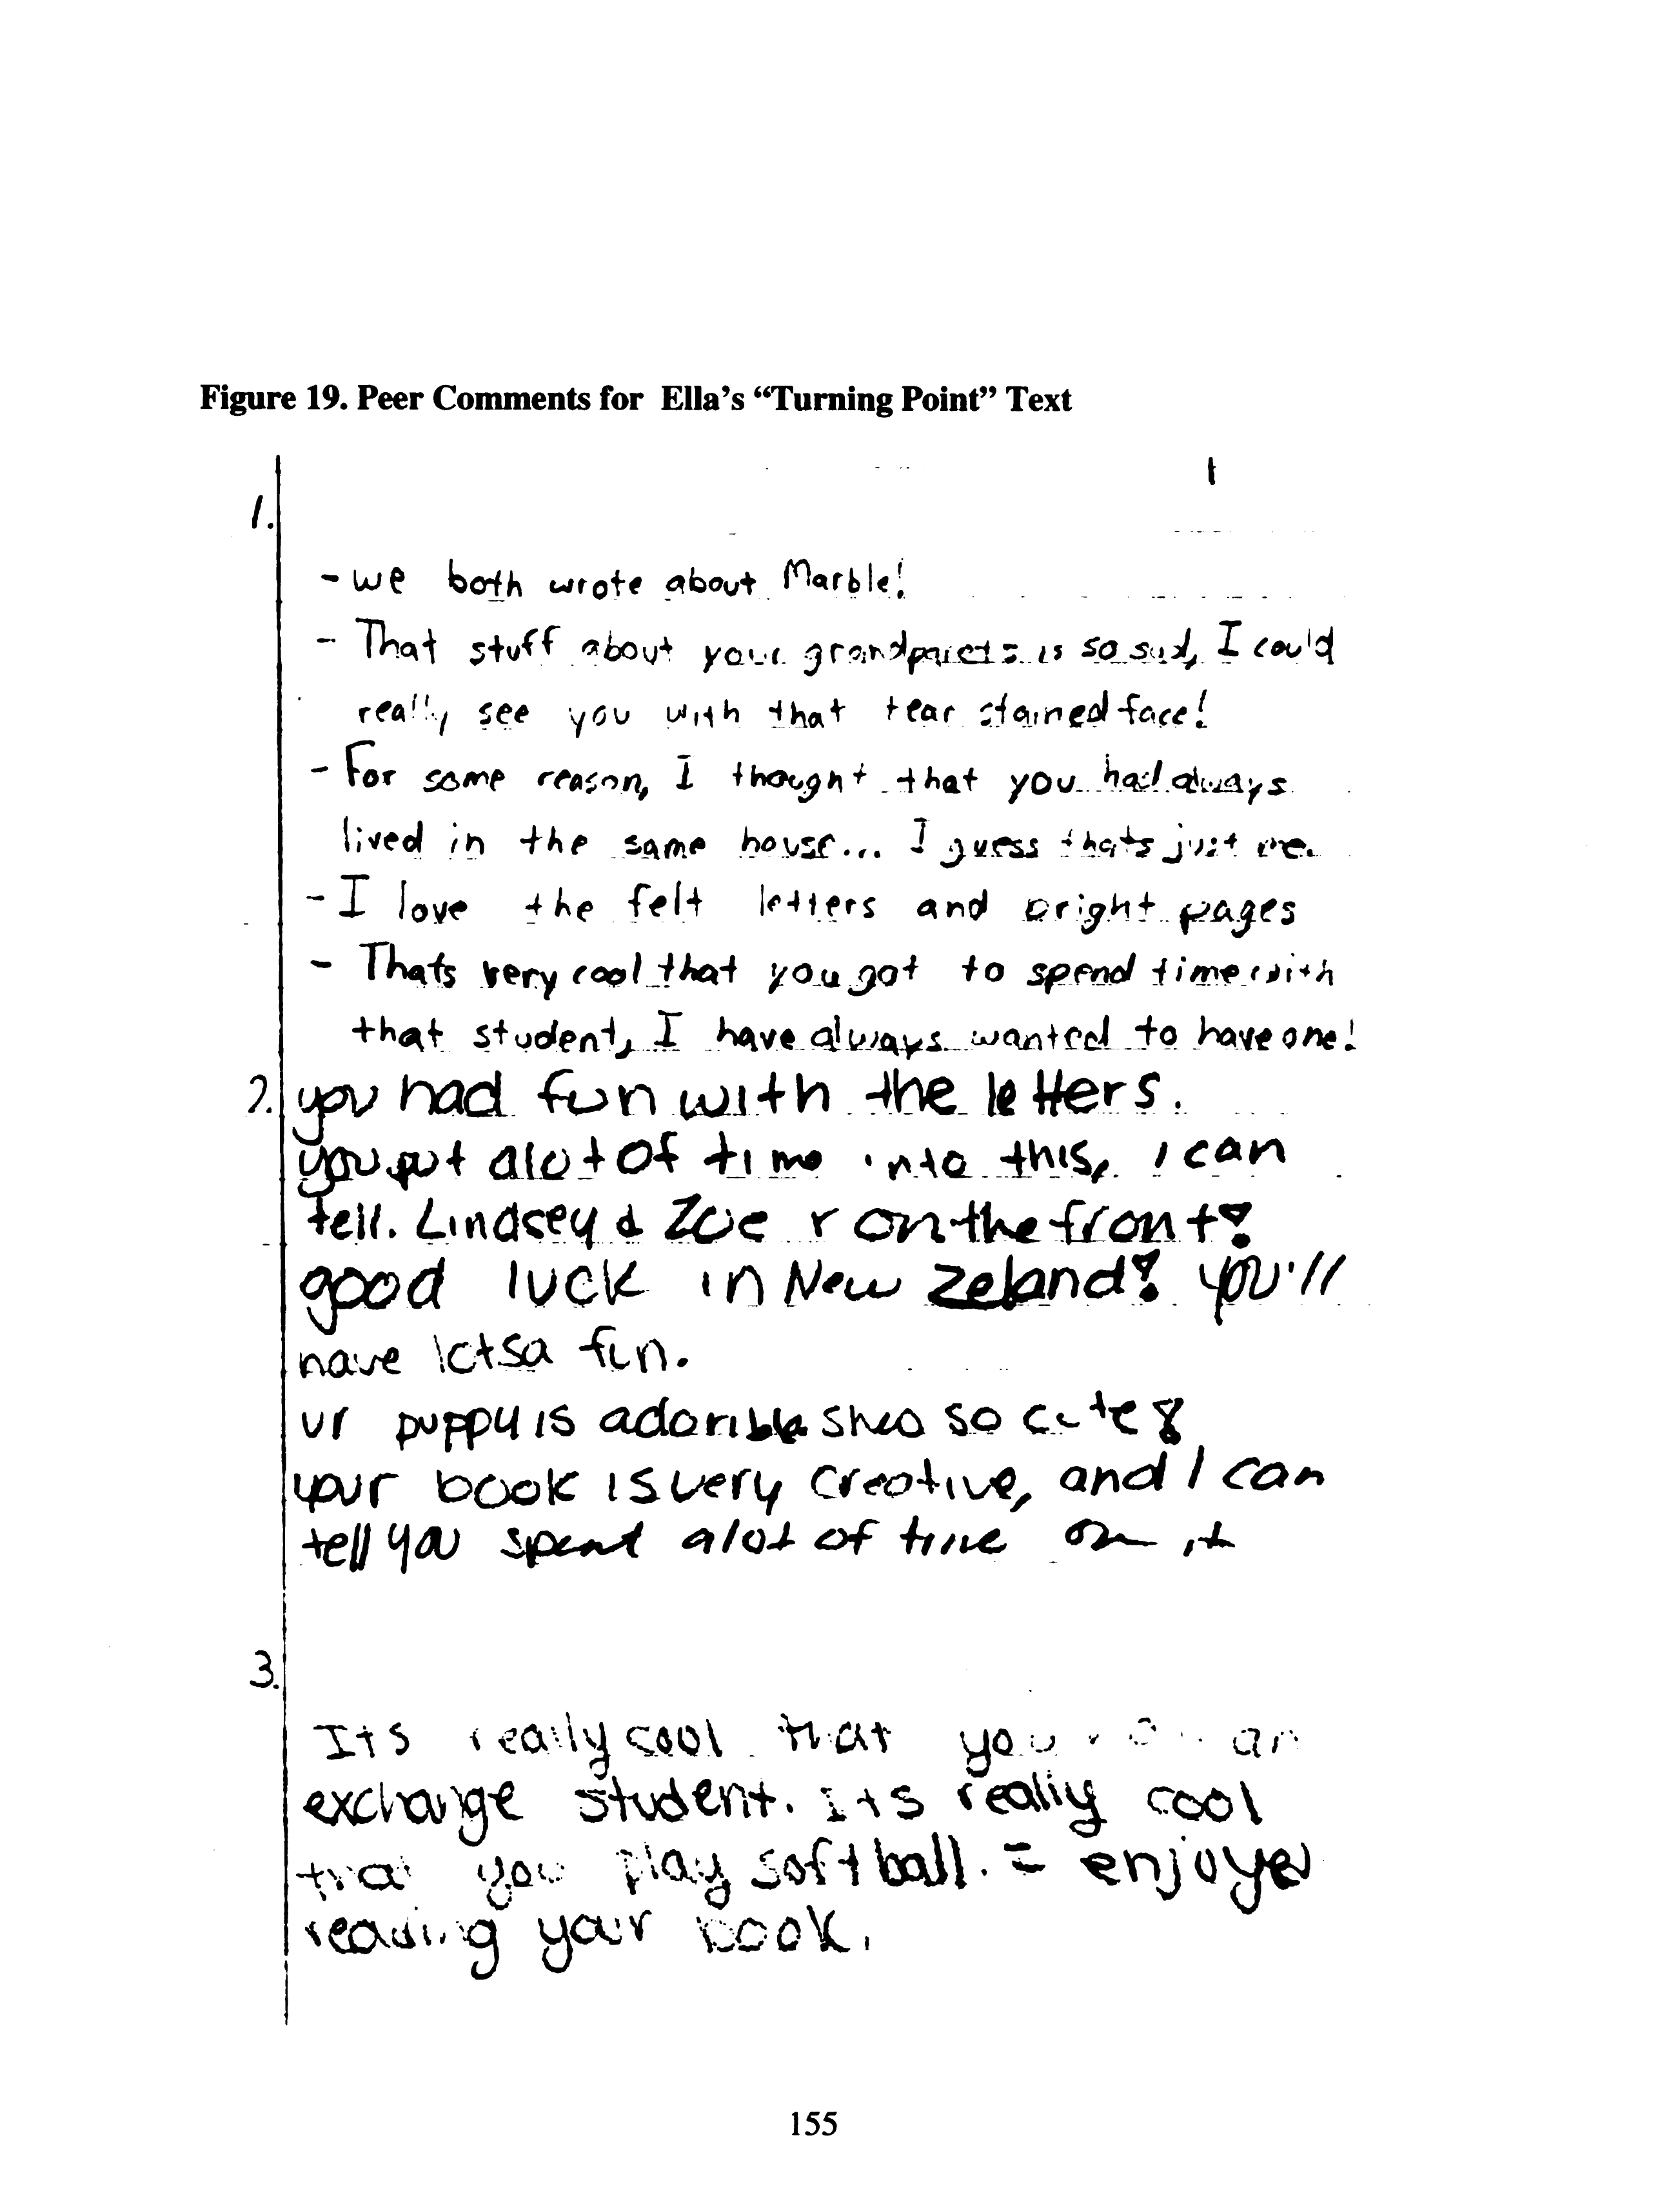 Figure 19. Peer Comments for Ella's “Turning Point” Text
1.
- we both wrote about Marble!
- That stuff about your grandparets is so sad, I could
really see you with that tear stained face!
- For some reason, I thought that you had always
lived in the same house... I guess thats just me.
- I love the felt letters and bright pages
- Thats very cool that you got to spend time with
that student, I have always wanted to have one!
2. you had fun with the letters.
you put alot of time into this, I can
tell. Lindsey & Zoe r on the front!
good luck in New Zeland! you'll
have lotsa fun.
ur puppy is adorible shes so cute!
your book is very creative, and I can
tell you spent alot of time on it
3.
Its really cool that you an
exchange student. Its really cool
that you play softball. I enjoyed
reading your book.
155